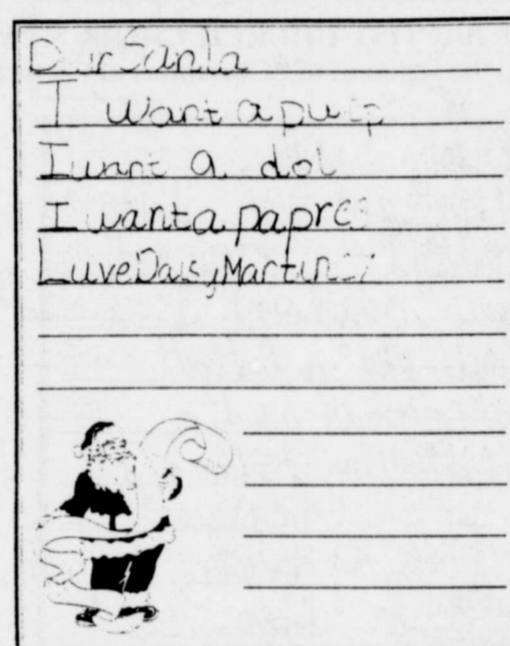 Dir Santa
I want a
I want a dol
I want a
Luve Daisy Martinez